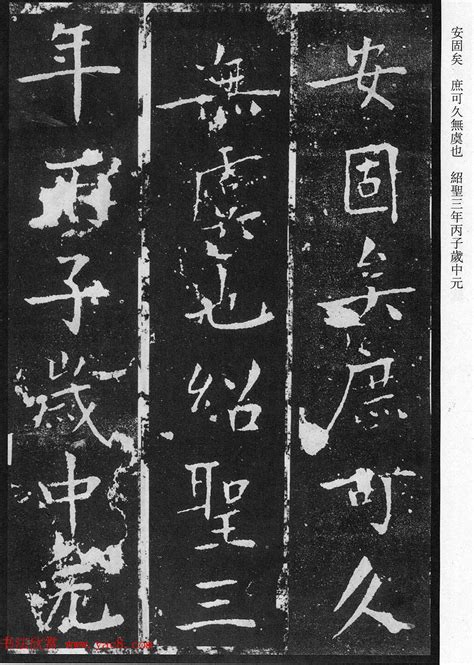 安固矣庶可久
無虞也紹聖三
年丙子歲中元
安固矣 庶可久無虞也 紹聖三年丙子歲中元
书法欣赏 www.yac8.com